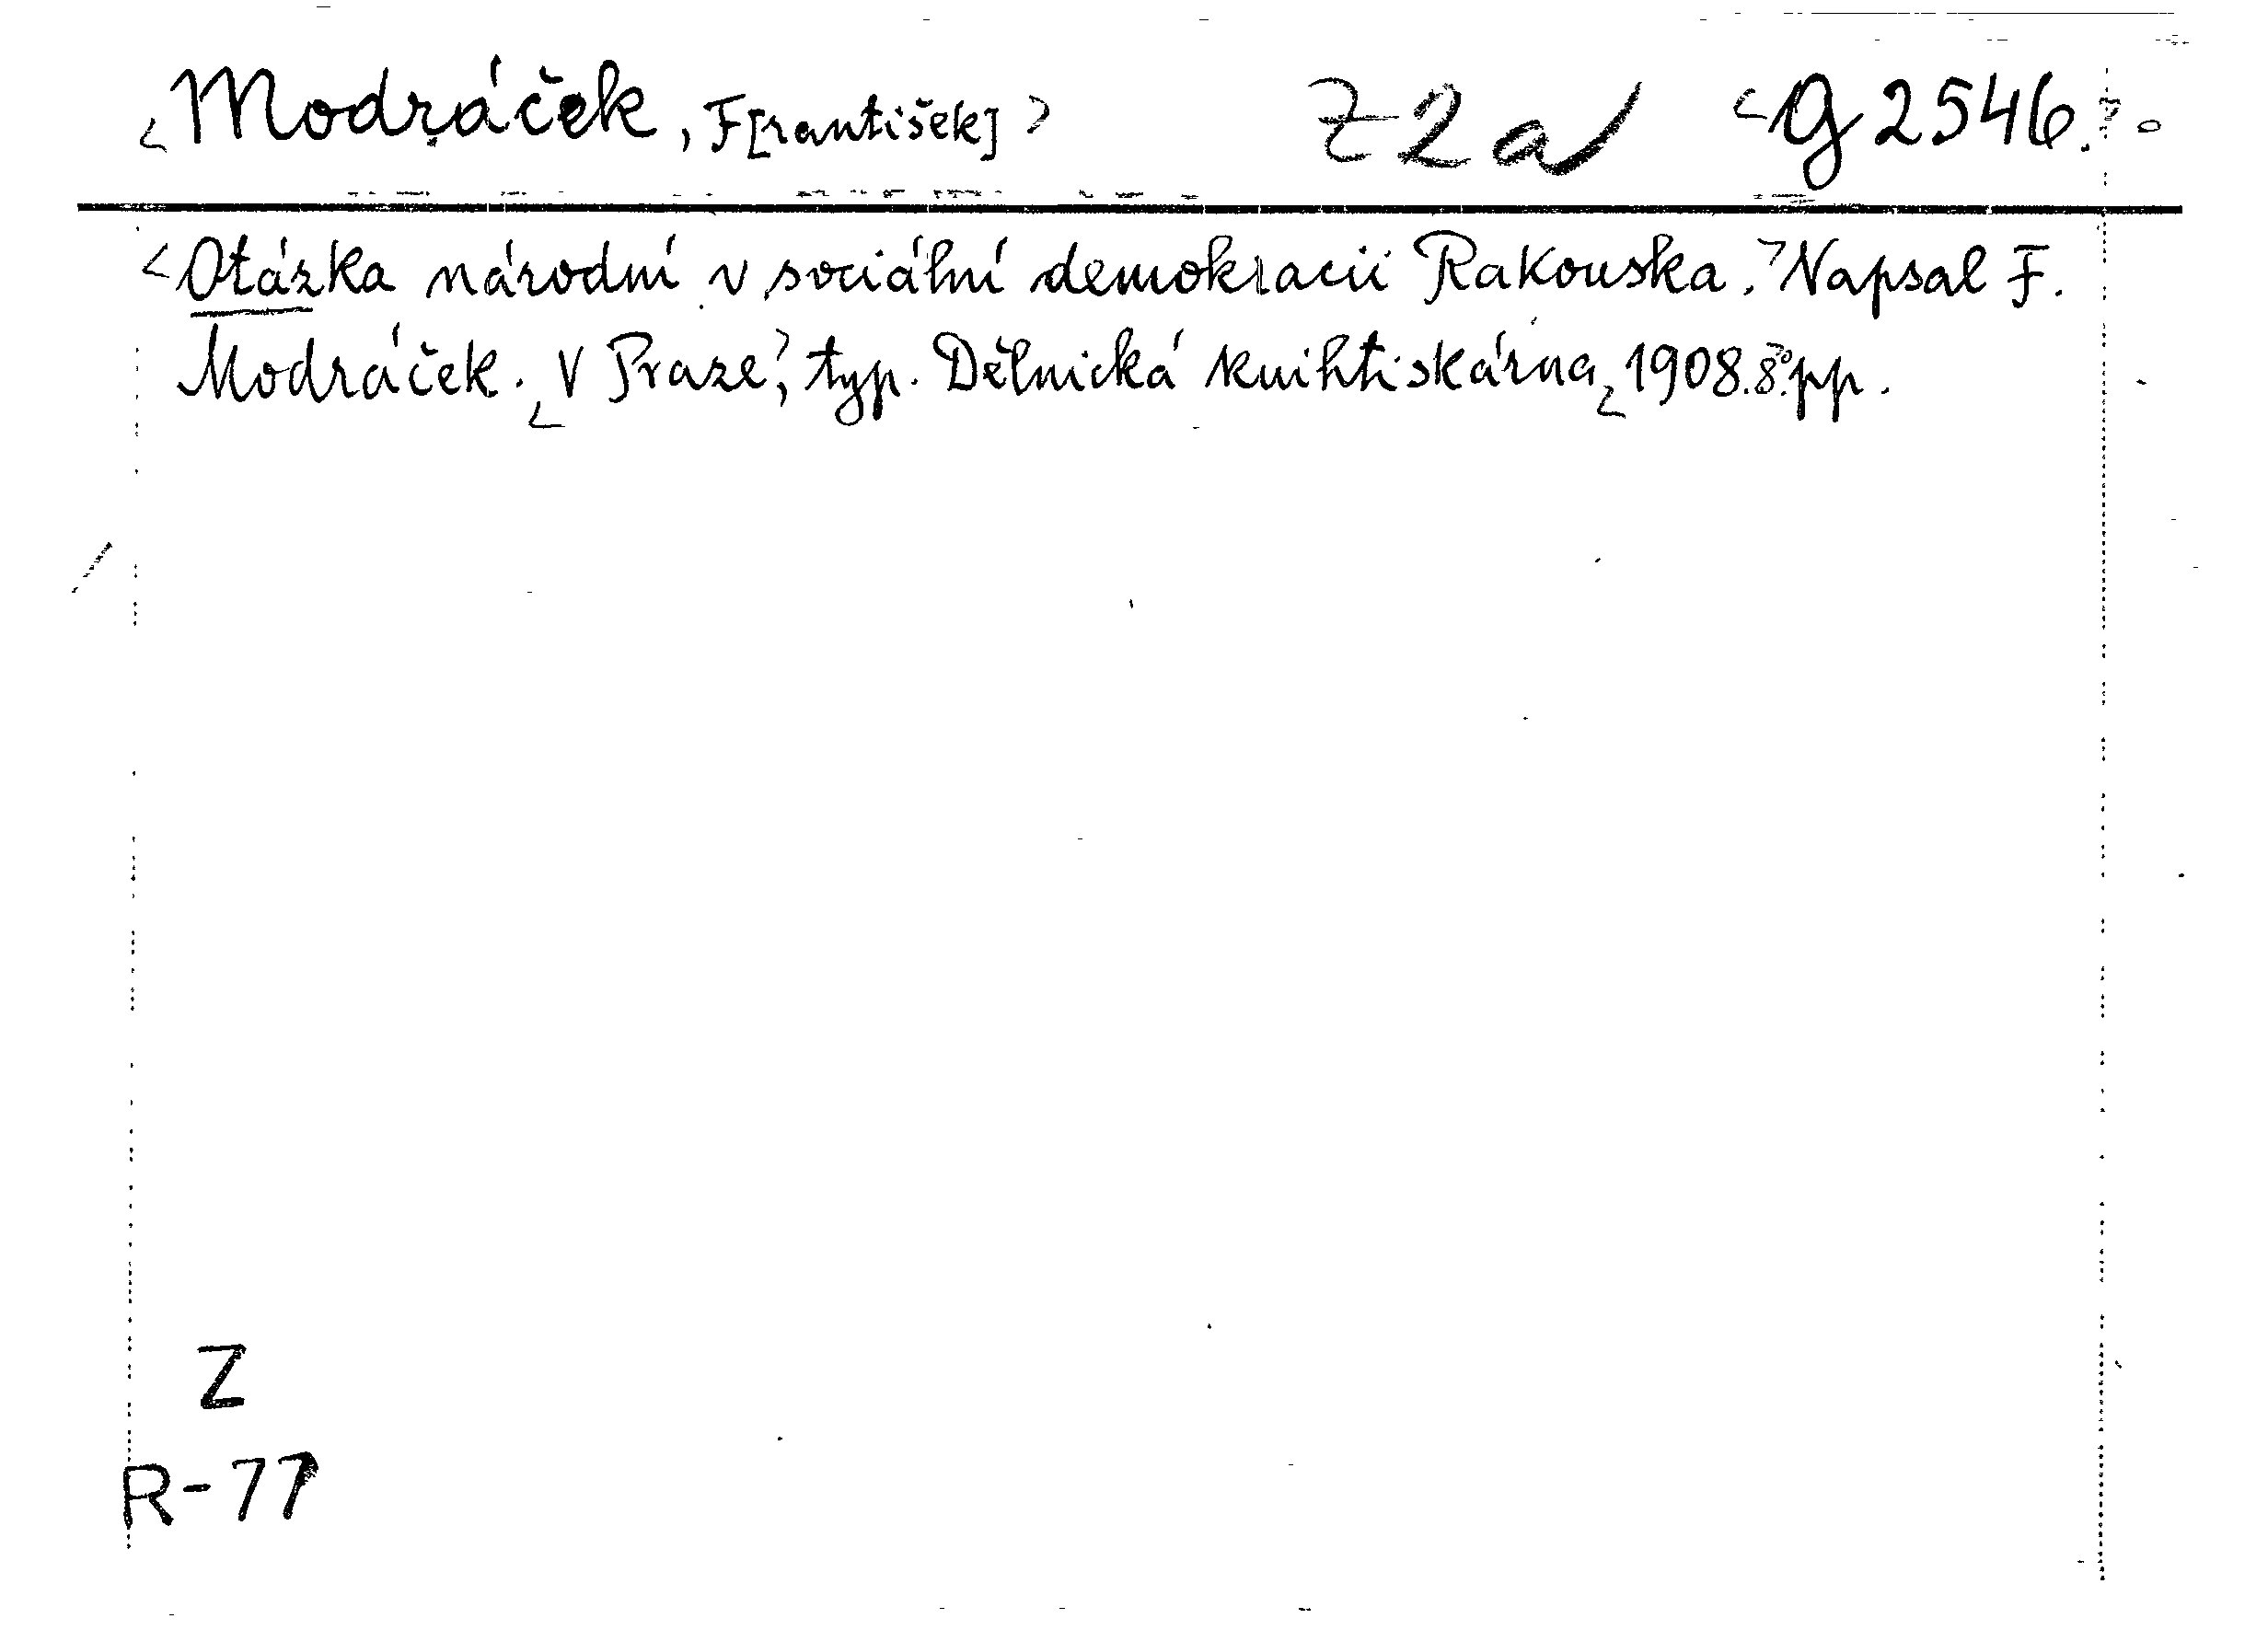 <Modráček, F[rantišek]> Z2a <G 2546.>
<Otázka národní v sociální demokracii Rakouska.> Napsal F.
Modráček. <V Praze>, typ. Dělnická knihtiskárna, <1908. 8.°> pp.
Z
R-77